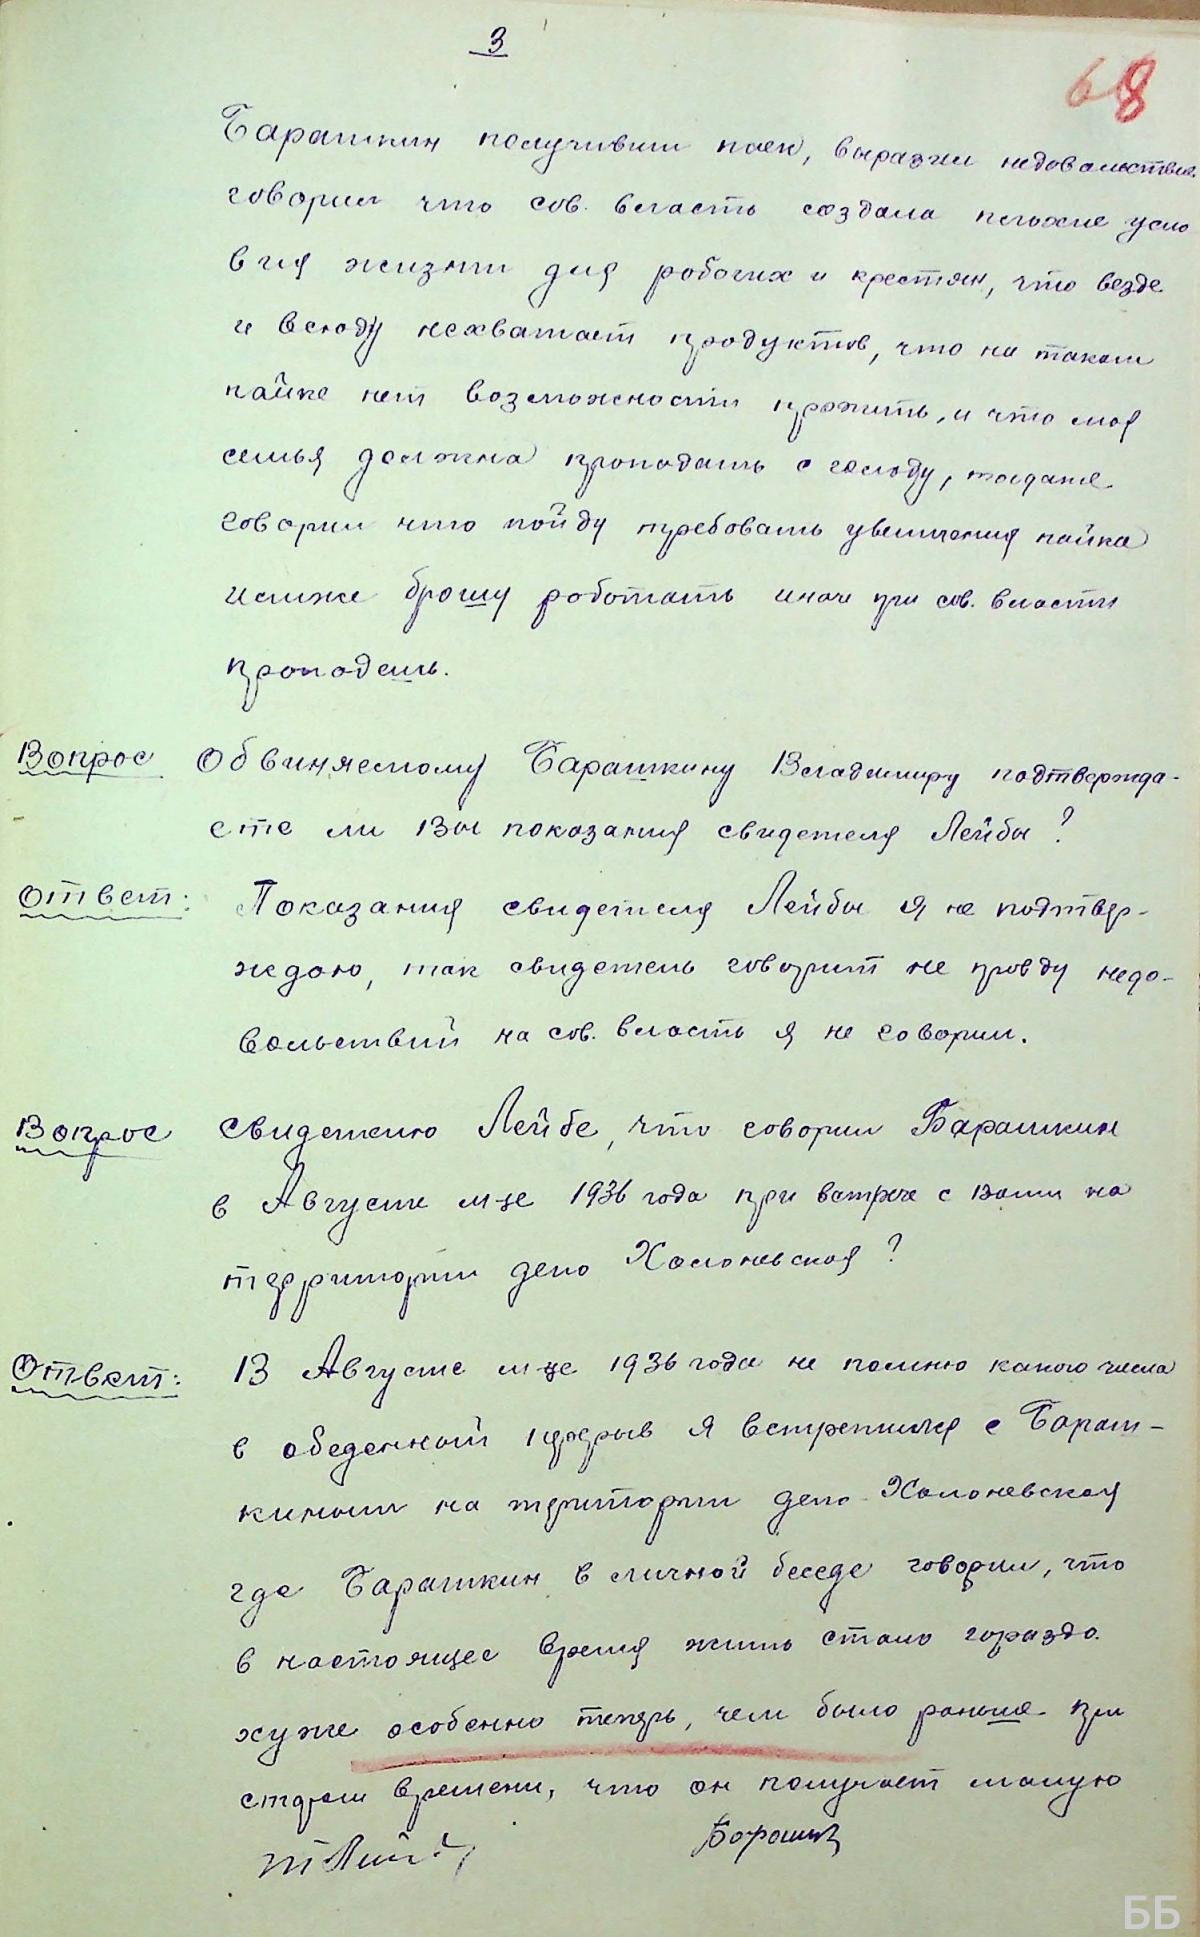 3
68
Барашкин получивши паек, выразил недовольствие.
говорил что сов. власть создала плохие усло
вия жизни для робочих и крестян, что везде
и всюду нехватает продуктов, что на таком
пайке нет возможности прожить, и что моя
семья должна пропадать с голоду, тогдаже
говорил что пойду требовать увеличения пайка
илиже брошу роботать иначе при сов. власти
пропадешь.
Вопрос Обвиняемому Барашкину Владимиру подтвержда-
ете ли Вы показания свидетеля Лейбы?
Ответ: Показания свидетеля Лейбы я не подтвер-
ждаю, так свидетель говорит не провду недо-
вольствий на сов. власть я не говорил.
Вопрос Свидетелю Лейбе, что говорил Барашкин
в Августе м-це 1936 года при встрече с Вами на
территории депо Холоневская?
Ответ: В Августе м-це 1936 года не помню какого числа
в обеденный перерыв я встретился с Бараш-
киным на територии депо Холоневская
где Барашкин в личной беседе говорил, что
в настоящее время жить стало гораздо
хуже особенно теперь, чем было раньше при
старом времени, что он получает малую
Барашкин
ББ